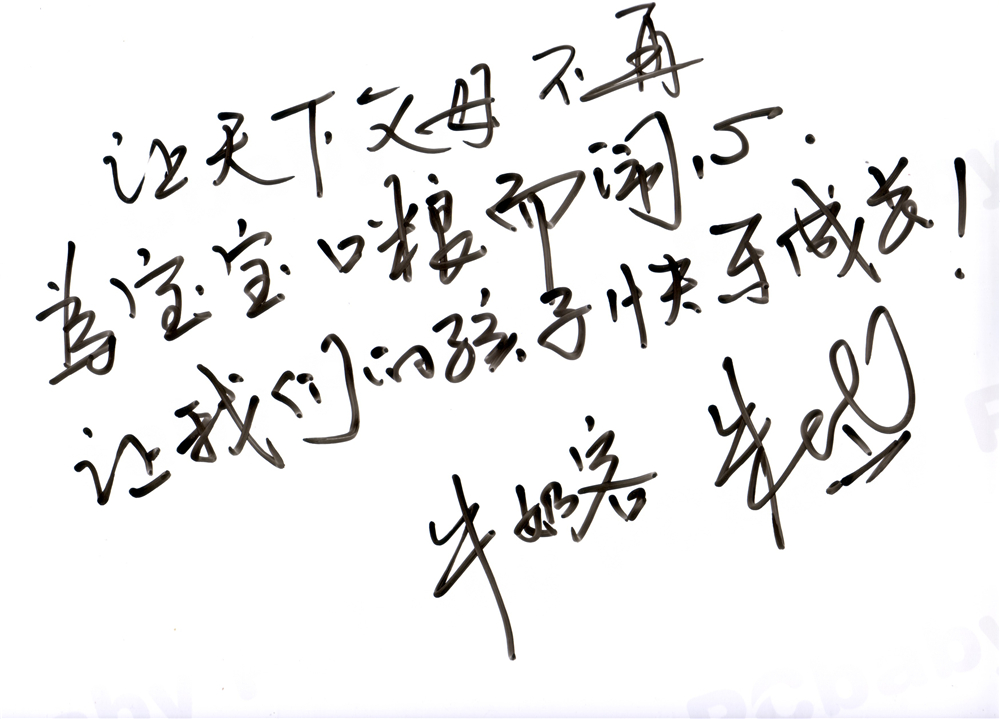 让天下父母不再
为宝宝口粮而闹心.
让我们的孩子快乐成长!
牛奶客 牛
PCbaby